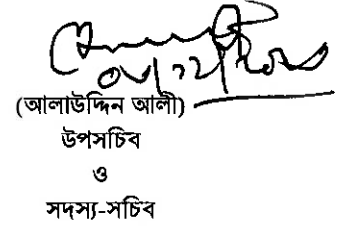 (আলাউদ্দিন আলী)
উপসচিব
ও
সদস্য-সচিব